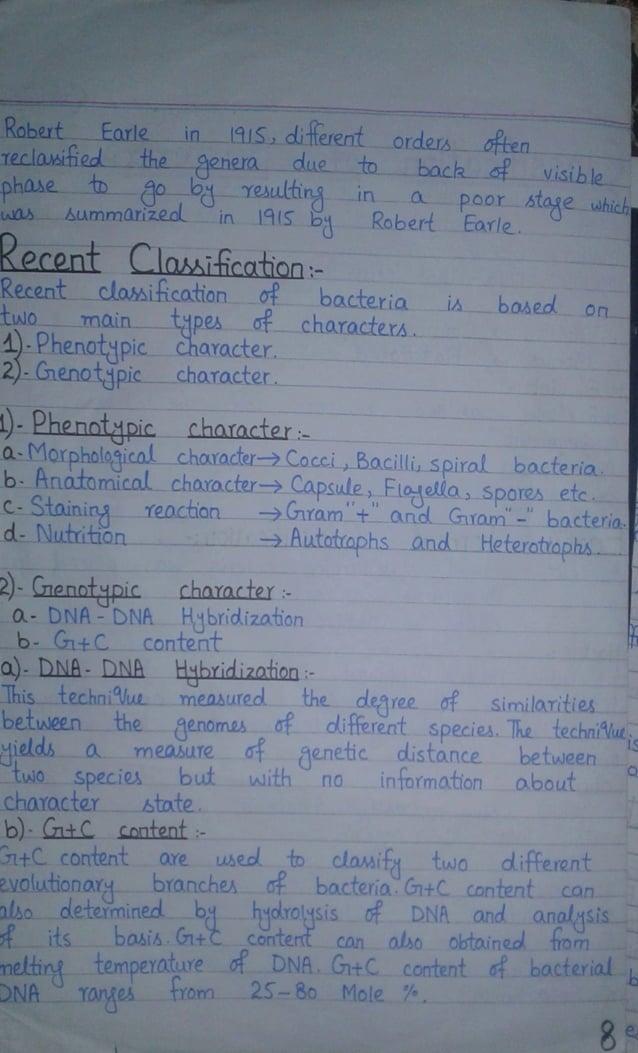 Robert Earle in 1915, different orders often
reclassified the genera due to back of visible
phase to go by resulting in a poor stage which
was summarized in 1915 by Robert Earle.
Recent Classification:-
Recent classification of bacteria is based on
two main types of characters.
1)- Phenotypic character.
2)- Genotypic character.
1)- Phenotypic character:-
a- Morphological character→ Cocci, Bacilli, spiral bacteria.
b- Anatomical character→ Capsule, Flagella, spores etc.
c- Staining reaction → Gram "+" and Gram "-" bacteria.
d- Nutrition → Autotrophs and Heterotrophs.
2)- Genotypic character:-
a- DNA-DNA Hybridization
b- G+C content
a)- DNA-DNA Hybridization:-
This technique measured the degree of similarities
between the genomes of different species. The technique
yields a measure of genetic distance between
two species but with no information about
character state.
b)- G+C content:-
G+C content are used to classify two different
evolutionary branches of bacteria. G+C content can
also determined by hydrolysis of DNA and analysis
of its basis. G+C content can also obtained from
melting temperature of DNA. G+C content of bacterial
DNA ranges from 25-80 Mole %.
8